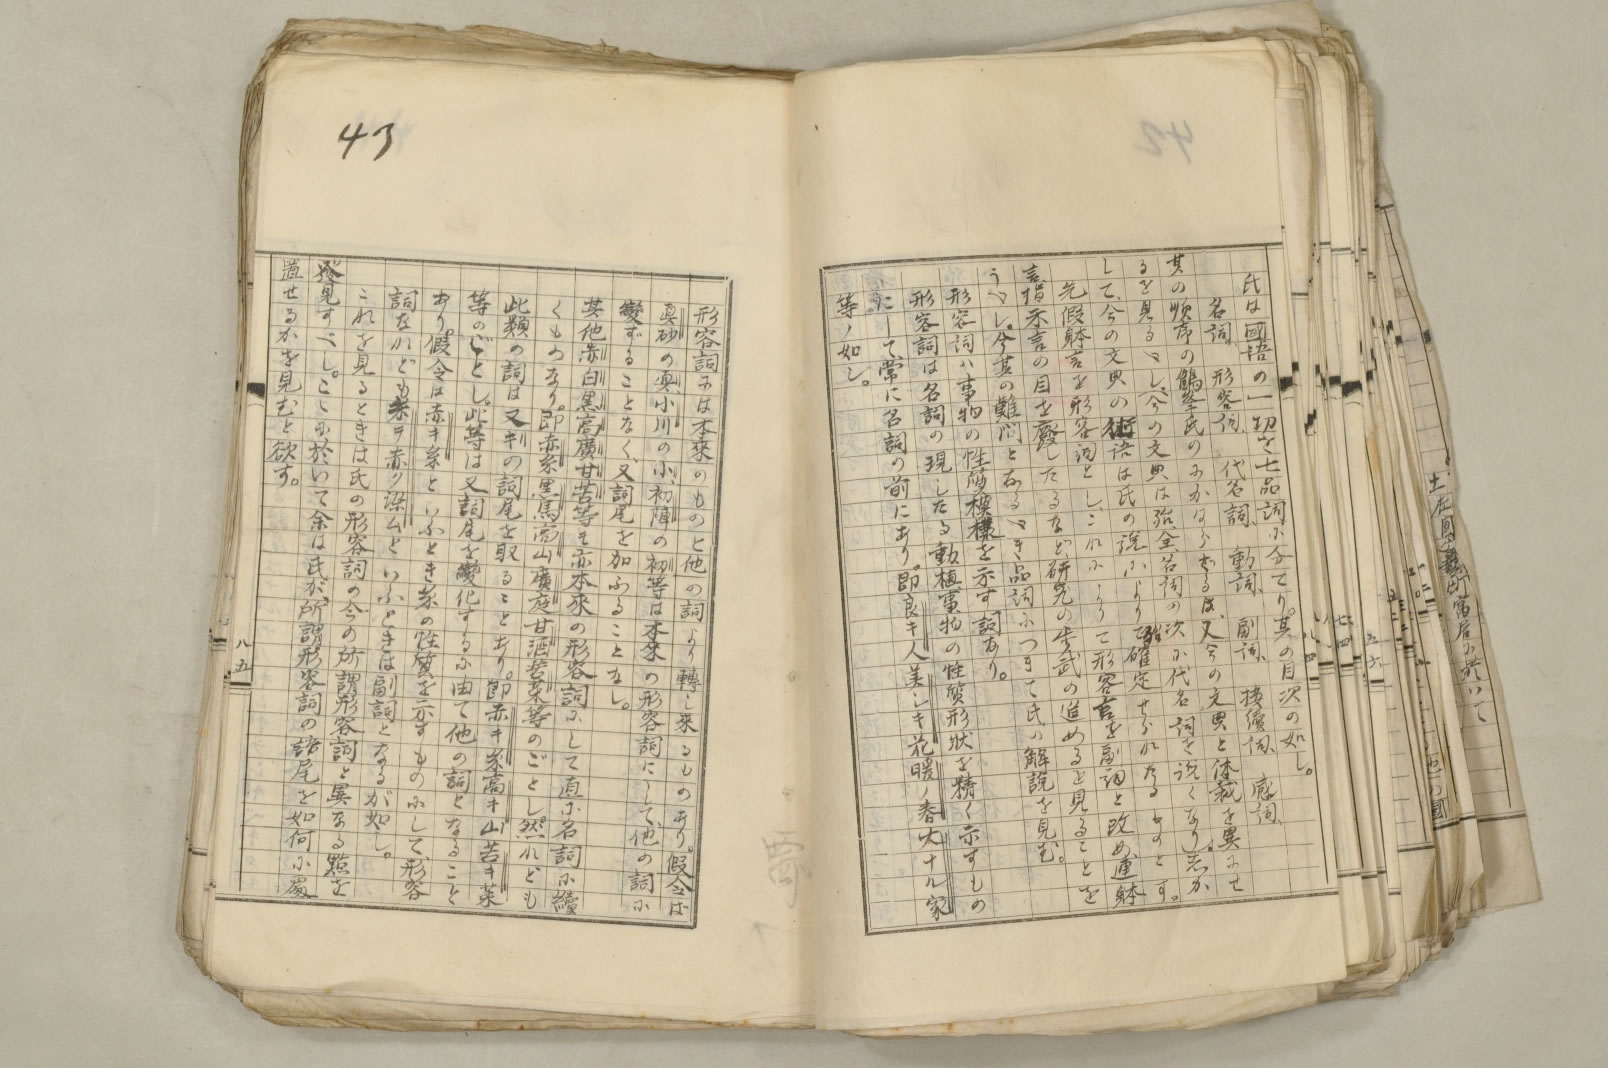 氏は國語の一切を七品詞に分てり。其の目次の如し。
名詞、形容詞、代名詞、動詞、副詞、接續詞、感詞、
其の順序の鶴峯氏のにかはらざるは、又今の文典と体裁を異にせ
るを見るべし。今の文典は殆全名詞の次に代名詞を説くなり。志か
して、今の文典の術語は氏の説によりて確定せられたるものとす。
先假躰言を形容詞とし、これによりて形容言を副詞と改め連躰
言指示言の目を廢したるなど、研究の歩武の進めるを見ることを
うべし。今其の難問とあるべき品詞につきて氏の解説を見む。
形容詞ハ事物の性質模様を示す詞なり。
形容詞は名詞の現したる動植事物の性質形状を精く示すもの
にして常に名詞の前にあり。即良キ人美シキ花暖ノ春大ナル家
等ノ如し。
43
形容詞には本來のものと他の詞より轉し來るものあり。假令ば
眞砂の眞小川の小、初陣の初等は本來の形容詞にして他の詞に
變ずることなく、又詞尾を加ふることなし。
其他赤白黒高廣甘苦等も亦本來の形容詞にして直に名詞に續
くものなり。即赤糸黒馬高山廣庭甘酒苦菜等のごとし然れども
此類の詞は又キの詞尾を取ることあり。即赤キ糸高キ山苦キ菜
等のごとし。此等は又詞尾を變化するに由て他の詞となること
あり。假令は赤キ糸といふとき糸の性質を示すものにして形容
詞なれども糸ヲ赤ク染ムといふときは副詞となるが如し。
これを見るときは氏の形容詞の今の所謂形容詞と異なる點を
發見すべし。こゝに於いて余は氏が所謂形容詞の語尾を如何に處
置せるかを見むと欲す。
八五